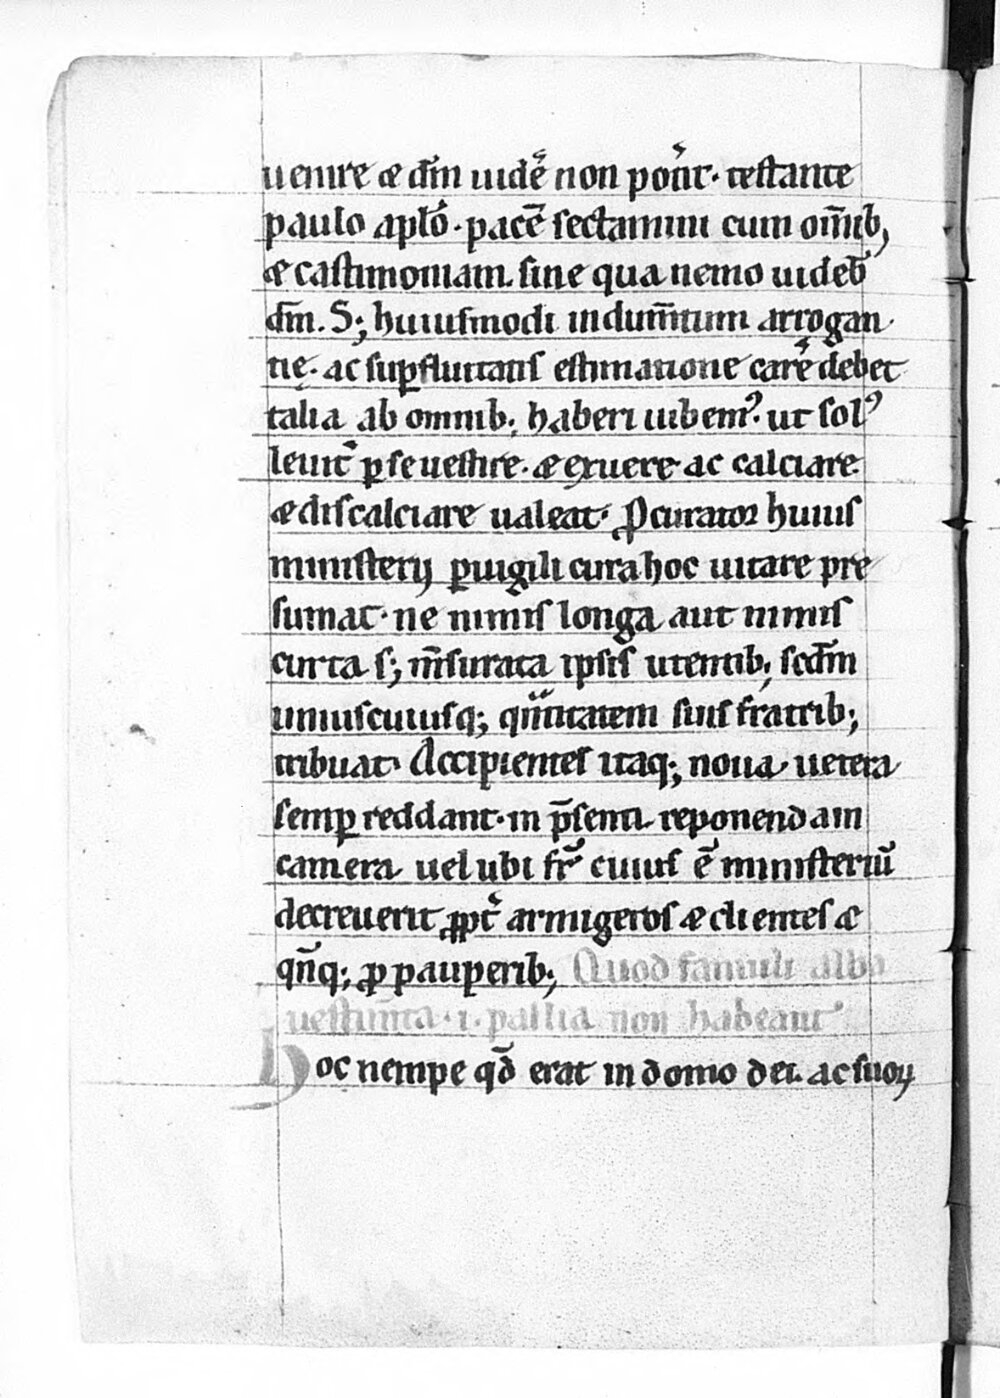 uenire & dm̄ uidē non pōnt᷑. testante
paulo aplō. pacē sectamini cum om̄ib;
& castimoniam. sine qua nemo uideb̄
dm̄. S; huiusmodi indum̄tum arrogan
tię. ac suꝑfluitatis estimatione carē debet
talia ab omnib; haberi iubemꝰ. ut solꝰ
leuit᷑ ꝑ se uestire. & exuere ac calciare
& discalciare ualeat. Ꝓcurator huius
ministerij ꝑuigili cura hoc uitare pre
sumat. ne nimis longa aut nimis
curta s; m̄surata ipsis utentib; scdm̄
uniuscuiusq; qͣntitatem suis fratrib;
tribuat. Accipientes itaq; noua. uetera
semꝑ reddant. in p̄senti. reponenda in
camera uel ubi fr̄ cuius ē ministeriū
decreuerit ꝓpt᷑ armigeros & clientes &
qn̄q; ꝓ pauperib; Quod famuli alba
uestim̄ta. i. pallia non habeant
Hoc nempe qd̄ erat in domo dei. ac suoꝝ